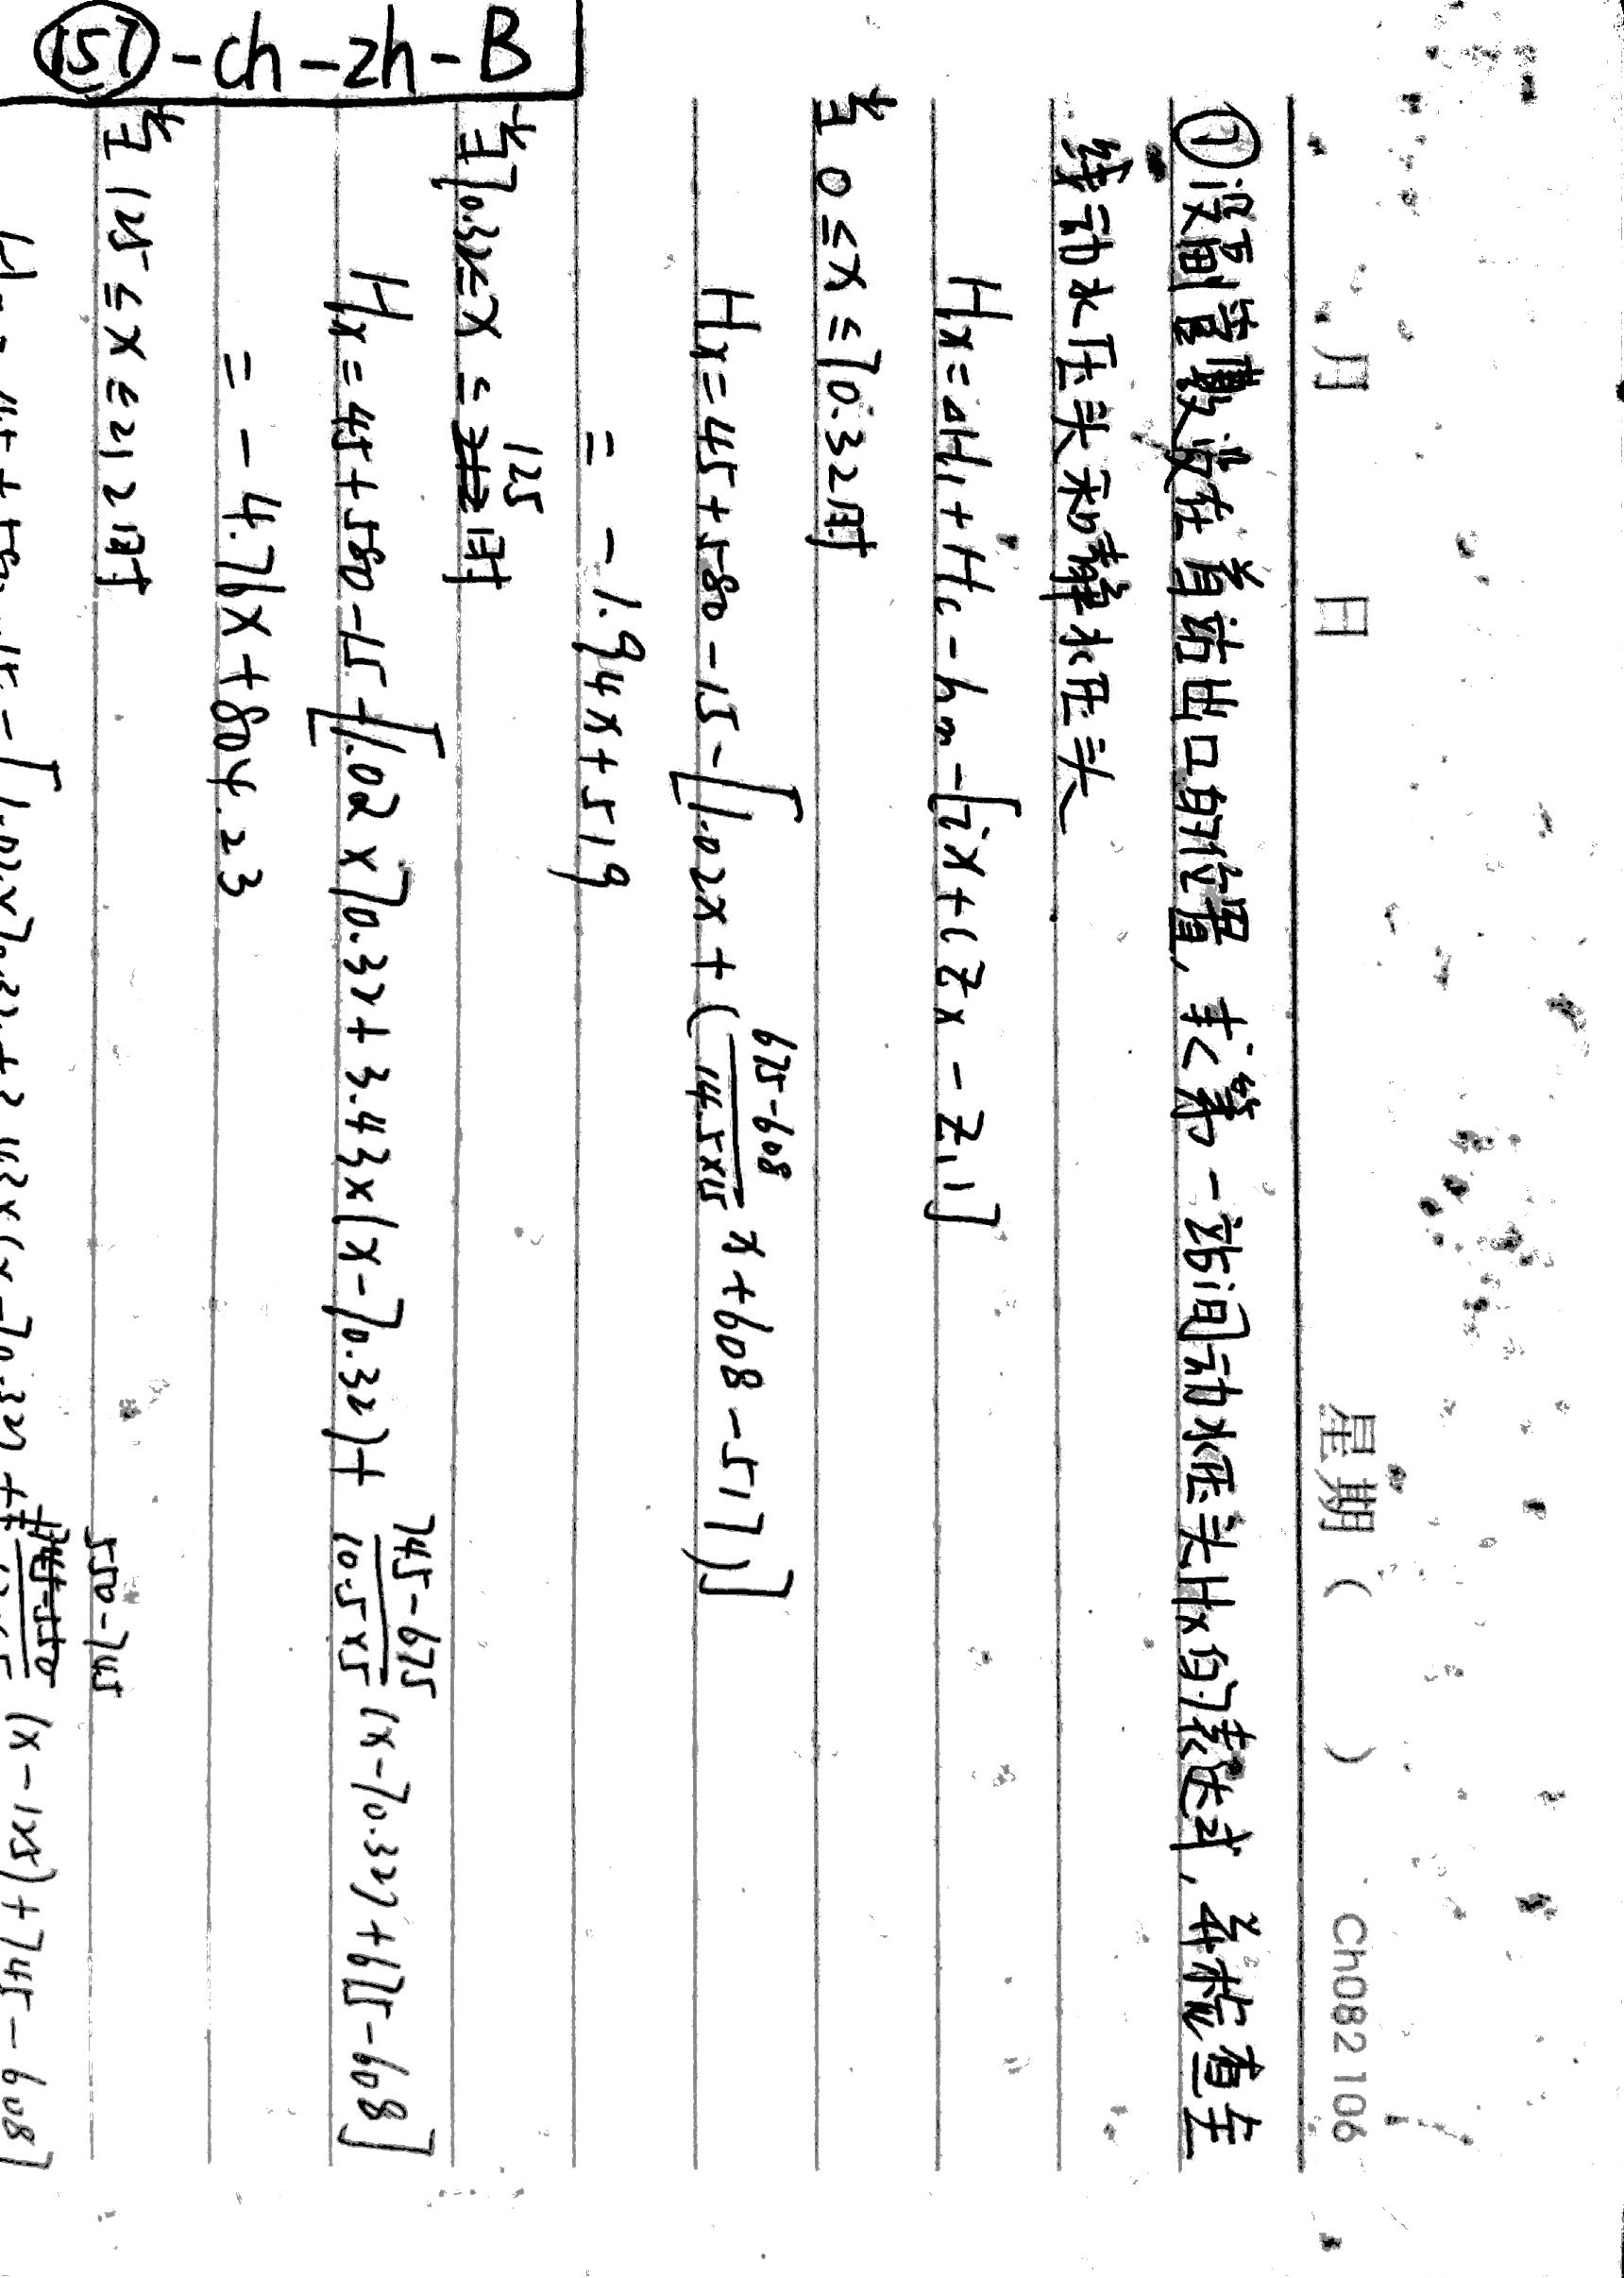 157-ch-zh-B
月 日 星期( ) Ch082106
①设副管敷设在首站出口的位置,求第一站间动水压头Hx的表达式,并检查全
线动水压头和静水压头
Hx=ΔH₁+Hc-hm-[ix+(Zx-Z₁)]
当0≤x≤70.32时
Hx=45+580-15-[1.02x+(\frac{675-608}{14.5×15}x+608-517)]
=-1.94x+519
当70.32≤x≤125时
Hx=45+580-15-[1.02×70.32+3.43×(x-70.32)+\frac{745-675}{10.5×5}(x-70.32)+675-608]
=-4.76x+804.23
当125≤x≤212时
-[1.02×70.32+3.43×(x-70.32)+ 550-745 (x-125)+745-608]